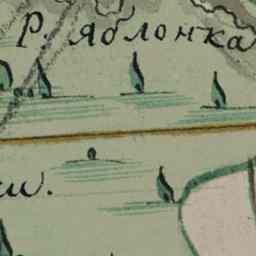 Р. яблонка
ш.